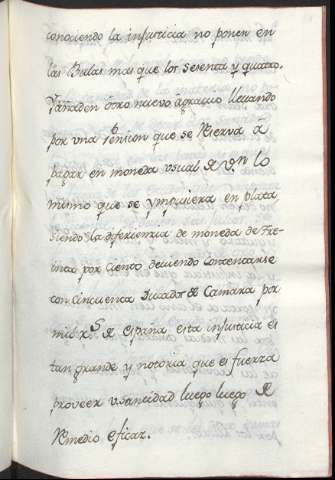 conociendo la injusticia no ponen en
las Bulas mas que los setenta y quatro.
Yañaden otro nuevo agrauio lleuando
por vna Pension que se Rserva à
pagar en moneda vsual de Vn lo
mismo que se ympusiera en plata
siendo la diferienzia de moneda de tre-
inta por ciento deuiendo Contentarse
con Cincuenta Ducados de Camara por
mil Rs de españa esta injusticia es
tan grande y notoria que es fuerza
proveer v. santidad luego luego de
Remedio eficaz.